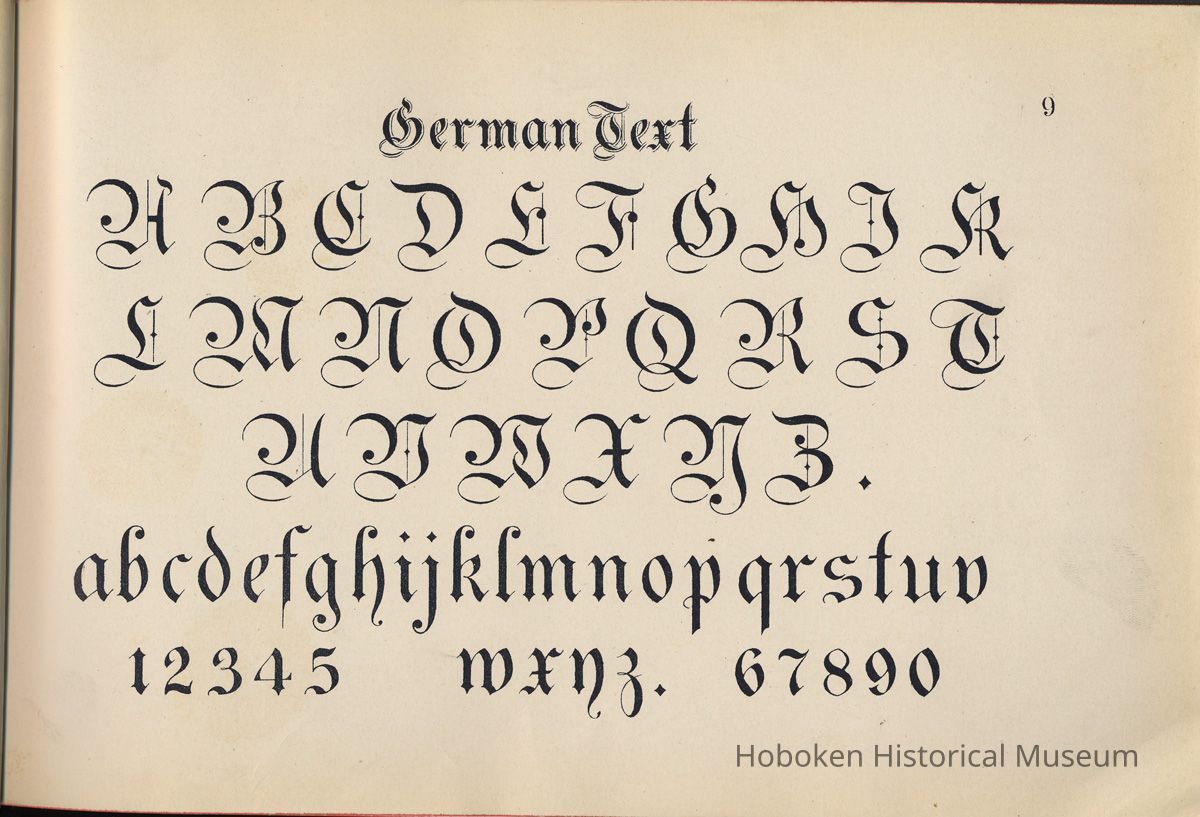 9
German Text
A B C D E F G H I K
L M N O P Q R S T
U V W X Y Z .
a b c d e f g h i j k l m n o p q r s t u v
1 2 3 4 5 w x y z . 6 7 8 9 0
Hoboken Historical Museum